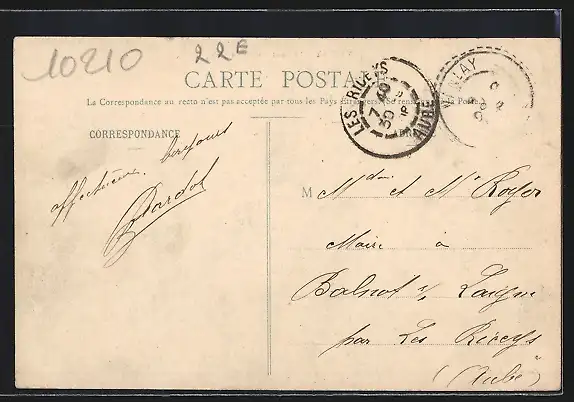 10210
22E
CARTE POSTALE
La Correspondance au recto n'est pas acceptée par tous les Pays Étrangers. (Se renseigner à la Poste.)
CORRESPONDANCE
LES RICEYS
AUBE
affectueux
M
et Mr Royer
Maire à
Balnot s/ Laigne
par Les Riceys
(Aube)